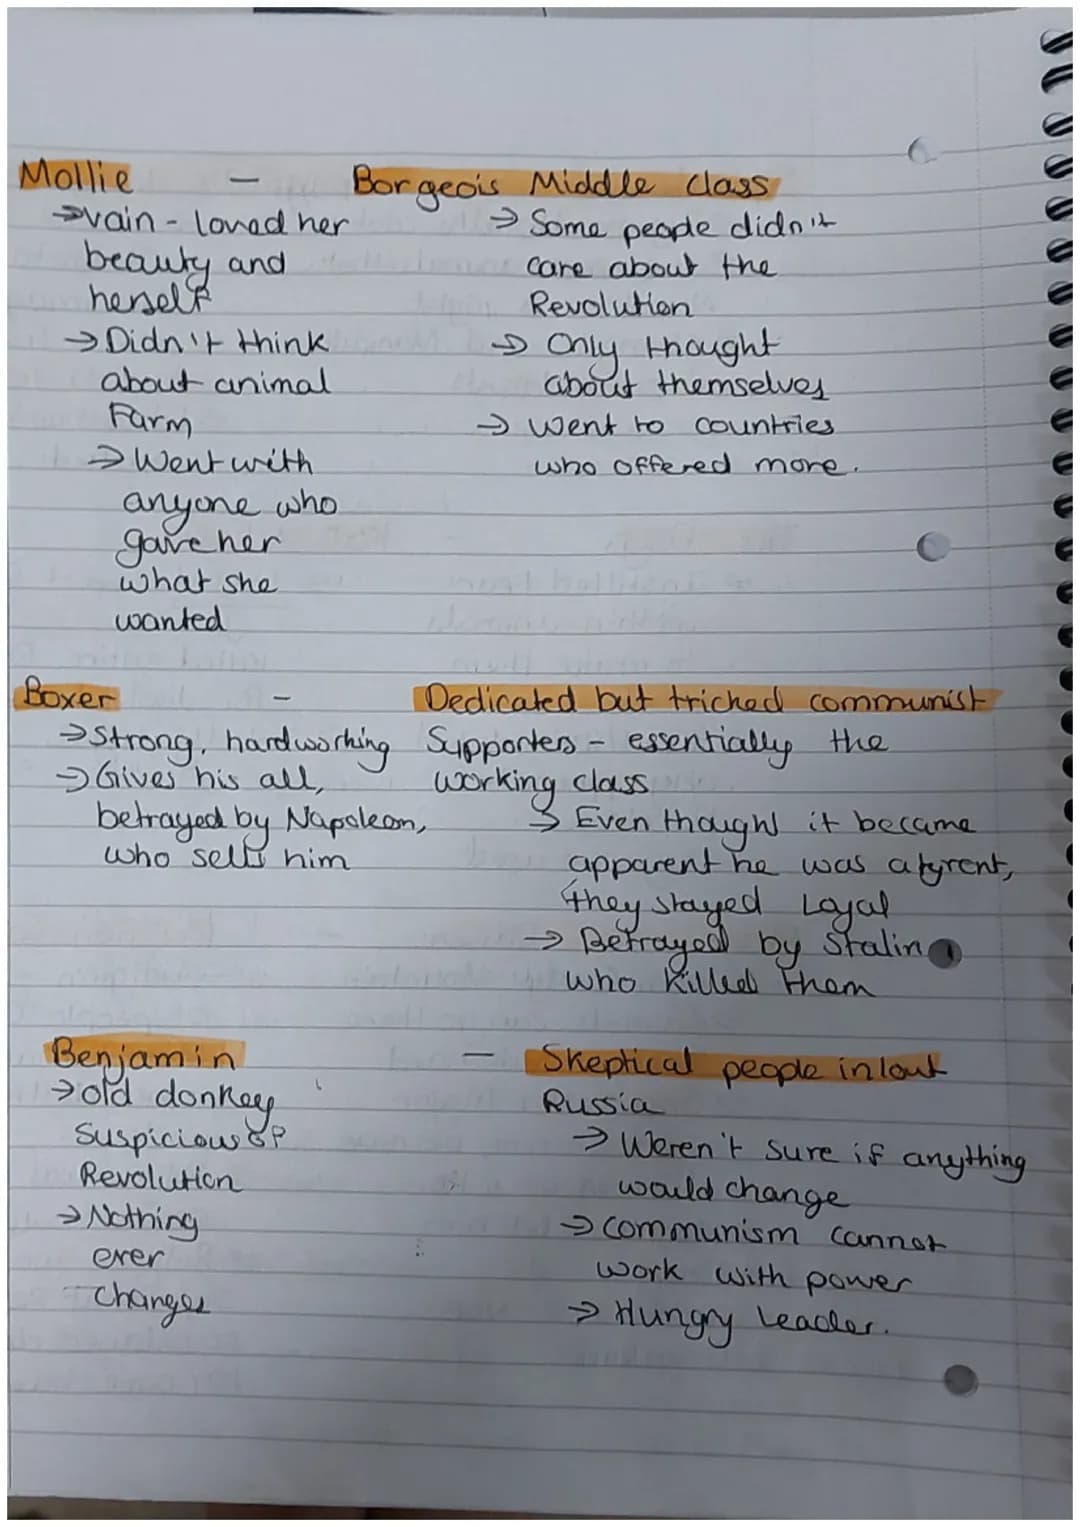 Mollie - Borgeois Middle class
→vain - loved her
beauty and
herself
→ Didn't think
about animal
Farm
→ Went with
anyone who
gave her
what she
wanted
→ Some people didn't
care about the
Revolution
→ Only thought
about themselves
→ Went to countries
who offered more.
Boxer - Dedicated but tricked communist
→Strong, hardworking
→Gives his all,
betrayed by Napoleon,
who sells him
Supporters - essentially the
working class
→ Even though it became
apparent he was a tyrent,
they stayed Loyal
→ Betrayed by Stalin
who killed them
Benjamin - Skeptical people in/out
→old donkey
Suspicious of
Revolution
→ Nothing
ever
Changes
Russia
→ Weren't sure if anything
would change
→ communism cannot
work with power
→ Hungry Leader.